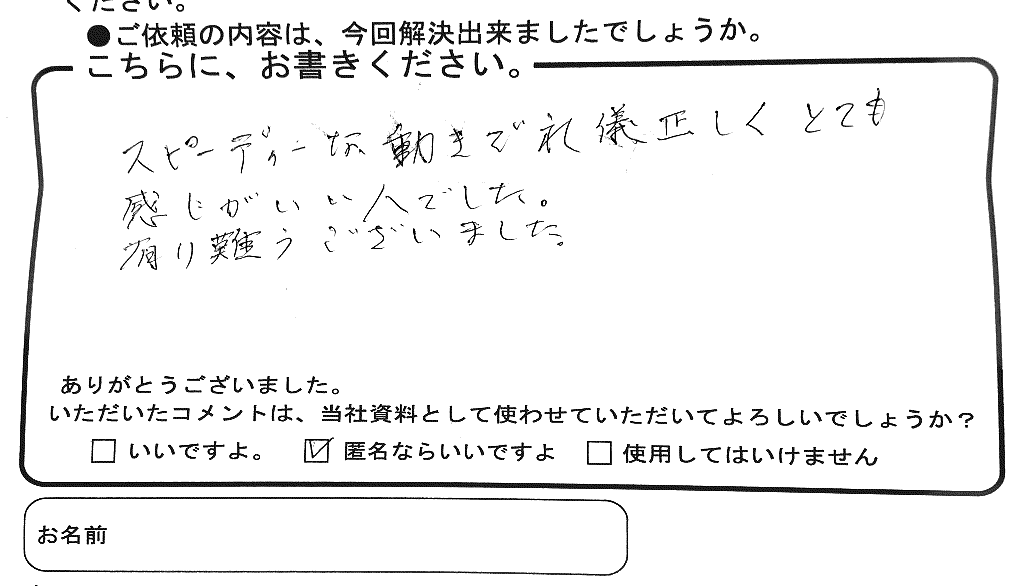 ください。
●ご依頼の内容は、今回解決出来ましたでしょうか。
こちらに、お書きください。
スピーディーな動きで礼儀正しくとても
感じがいい人でした。
有り難うございました。
ありがとうございました。
いただいたコメントは、当社資料として使わせていただいてよろしいでしょうか？
□ いいですよ。 ☑ 匿名ならいいですよ □ 使用してはいけません
お名前